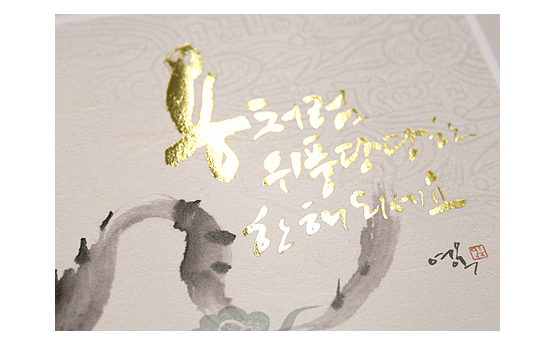 용처럼
위풍당당한
한해 되세요
영묵